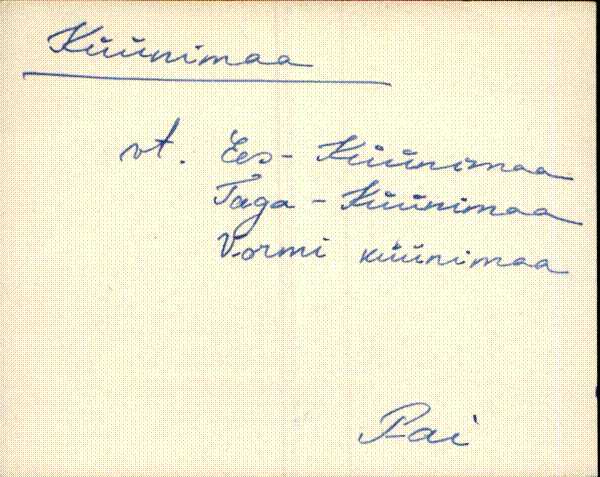 Küünimaa
vt. Ees-Küünimaa
Taga-Küünimaa
Vormi küünimaa
Pai